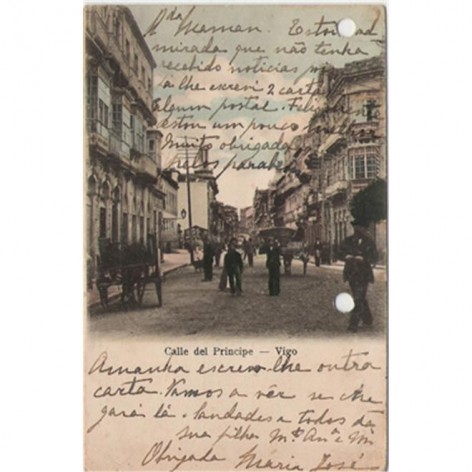 Qda Maman. Estou ad
mirada que não tenha
recebido noticias
já lhe escrevi 2 cartas
algum postal. Felizmente
estou um pouco melhor
Muito obrigada
pelos parabens
Calle del Príncipe — Vigo
Amanha escrevo lhe outra
carta. Vamos a vêr se che
gará lá. Saudades a todos da
sua filha Mª Anª e Mª
Obrigada Maria José